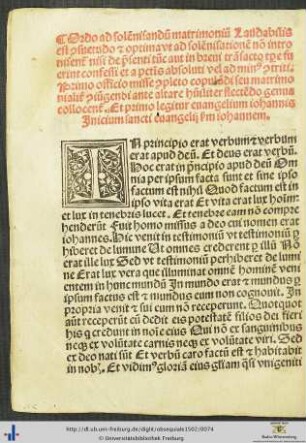 Ordo ad solẽnisandũ matrimoniũ Laudabilis
est ꝯsuetudo ⁊ optima vt ad solẽnisationẽ nõ intro
nisi de
erint confessi et a pctĩs absoluti vel ad minꝰ ꝯtriti.
Primo officio misse ꝯpleto copulãdi seu matrimo
nialit̃ ante altare flectẽdo genua
collocent̃. Et primo legitur euangelium iohannis
Inicium sancti euangelij ẝm iohannem.
IN principio erat verbum ⁊ verbum
erat apud deũ. Et deus erat verbũ.
Hoc erat in pͥncipio apud deũ Om
nia per ipsum facta sunt et sine ipso
factum est nihil Quod factum est in
ipso vita erat Et vita erat lux hoĩm
et lux in tenebris lucet. Et tenebre eam nõ compre
henderũt Fuit homo missus a deo cui nomen erat
iohannes. Hic venit in testimoniũ vt testimoniũ ꝑ
hiberet de lumine Ut omnes crederent ꝑ illũ Nõ
erat ille lux Sed vt testimoniũ perhiberet de lumi
ne Erat lux vera que illuminat omnẽ hominẽ veni
entem in hunc mundũ In mundo erat ⁊ mundus ꝑ
ipsum factus est ⁊ mundus eum non cognouit. In
propria venit ⁊ sui eum nõ receperunt. Quotquot
aũt receperũt eũ dedit eis potestatẽ filios dei fieri
his q̃ credunt in noĩe eius Qui nõ ex sanguinibus
neqꝫ ex volũtate carnis neqꝫ ex volũtate viri. Sed
ex deo nati sũt Et verbũ caro factũ est ⁊ habitabit
in nobꝭ. Et vidimꝰ gloriã eius gliam q̃si vnigeniti
http://dl.ub.uni-freiburg.de/diglit/obsequiale1502/0074
© Universitätsbibliothek Freiburg
Baden-Württemberg